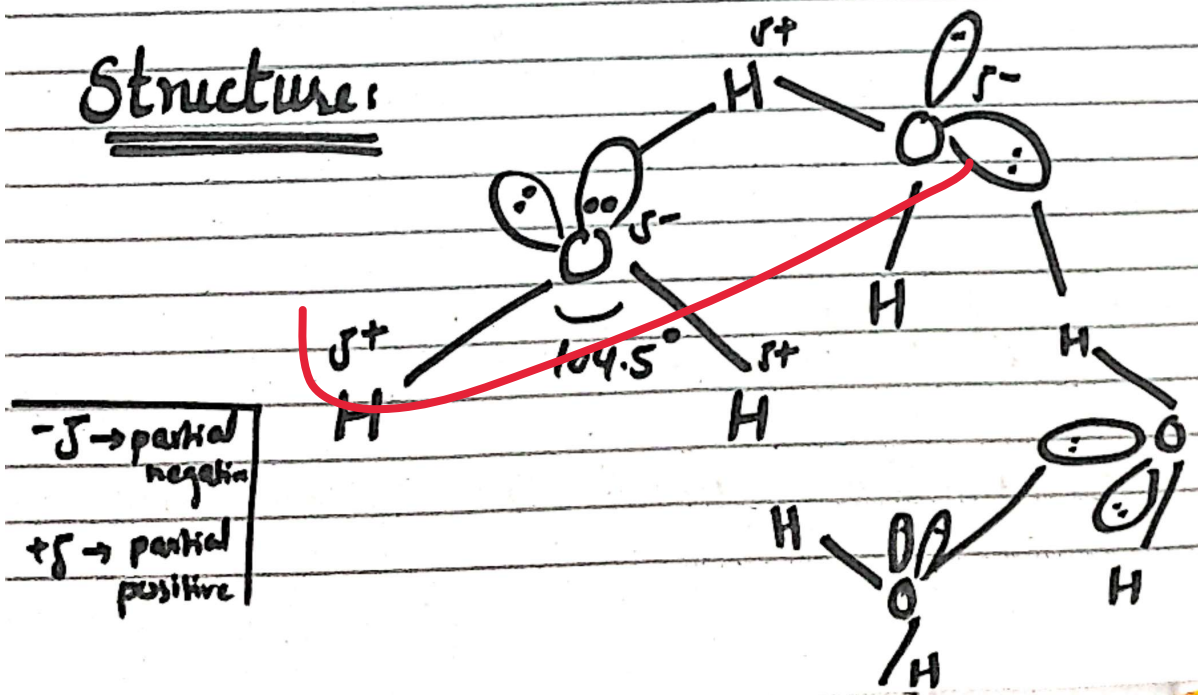 Structure:
δ+
H
O
δ-
H
δ-
O
104.5°
δ+
H
δ+
H
H
O
H
H
O
H
-δ → partial
negative
+δ → partial
positive